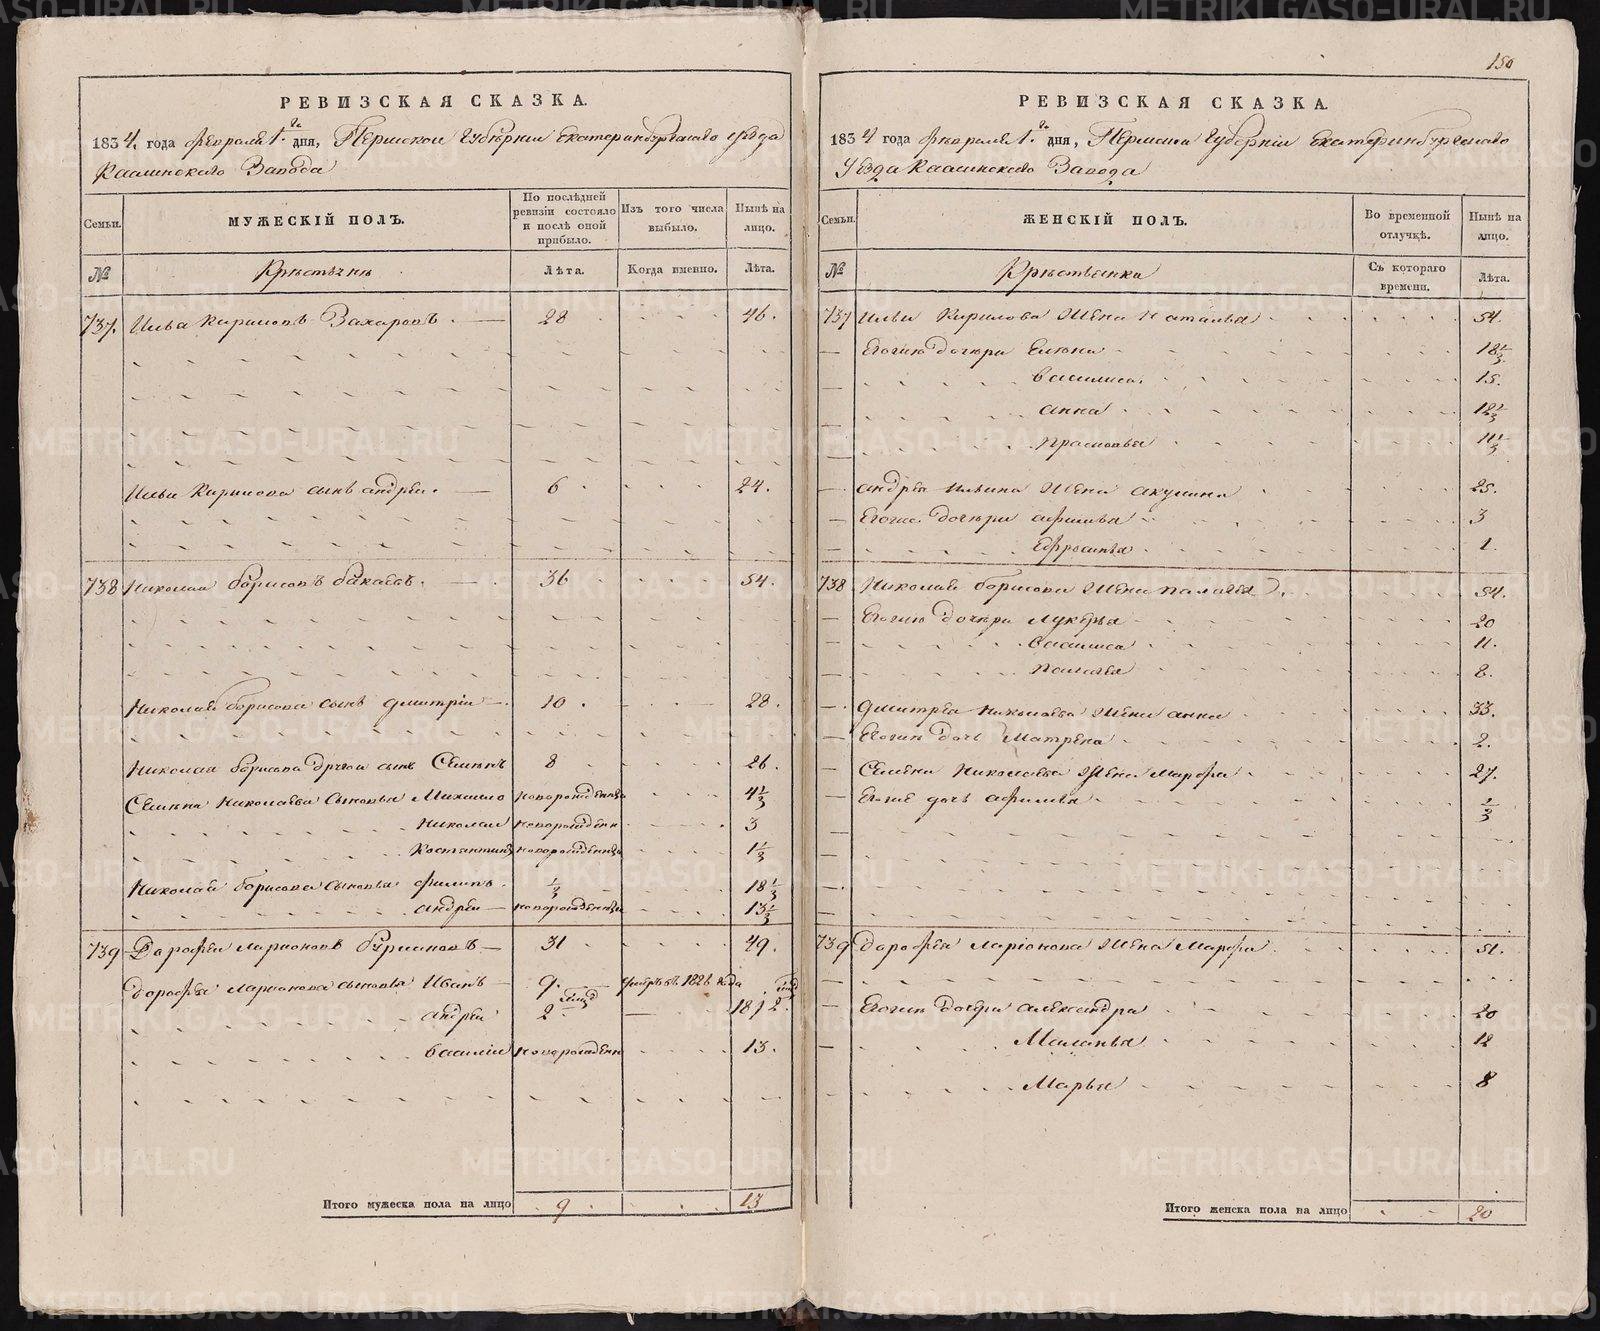 150
РЕВИЗСКАЯ СКАЗКА.
1834 года Февраля 1го дня, Пермской Губернии Екатеринбургскаго уѣзда
Каслинскаго Завода
Семьи. МУЖЕСКІЙ ПОЛЪ. По послѣдней ревизіи состояло и послѣ оной прибыло. Изъ того числа выбыло. Нынѣ на лицо.
№ Крестьяне Лѣта. Когда именно. Лѣта.
737. Илья Кириловъ Захаровъ. 28 46.
Ильи Кирилова сынъ андрей. 6 24.
738 Николай борисовъ бакаевъ. 36 54.
Николая борисова сынъ дмитрій 10. 28.
Николая борисова другой сынъ Семенъ 8 26.
Семена Николаева сыновья Михаило новорожденны 4 1/3
Николай новорожденн 3
Костантинъ новорожденны 1 1/3
Николая борисова сыновья филипъ. 1/3 18 1/3
андрей новорожденны 13 1/3
739 Дорофей ларионовъ 31 49.
дорофея ларионова сыновья Иванъ 9. 1828 года
андрей 2
василии новорожденн 13.
Итого мужеска пола на лицо 9 13
РЕВИЗСКАЯ СКАЗКА.
1834 года Февраля 1го дня, Пермской Губерніи Екатеринбургскаго
Уѣзда Каслинскаго Завода
Семьи. ЖЕНСКІЙ ПОЛЪ. Во временной отлучкѣ. Нынѣ на лицо.
№ Крестьянки Съ котораго времени. Лѣта.
737 Ильи Кирилова жена Наталья 54.
Егожъ дочери Елена 18 1/3
василиса. 15.
анна 12 1/3
прасковья 11 1/3
андрея Ильина жена акулина 25.
Егоже дочери афимья 3
Ефросинья 1.
738. Николая борисова жена палагея 54.
Егоже дочери лукерья 20
василиса 11.
палагея 8.
дмитрея николаева жена анна 33.
Егоже дочь Матрена 2.
Семена Николаева жена Марфа 27.
Егоже дочь афимья 1/3
739 дорофея ларіонова жена Марфа 51.
Егоже дочери александра 20
Меланья 12
Марья 8
Итого женска пола на лицо 20
METRIKI.GASO-URAL.RU